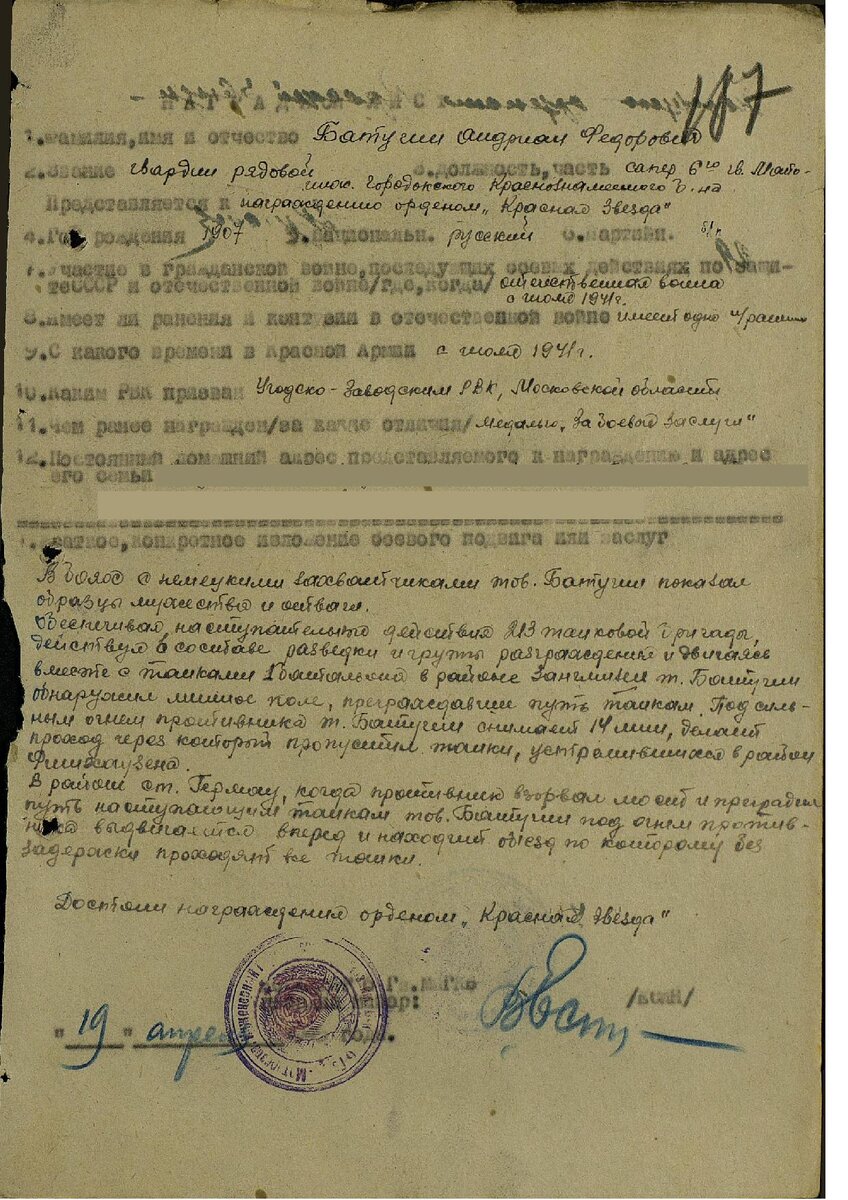 - НАГРАДНОЙ ЛИСТ -
187
1.Фамилия,имя и отчество Батугин Андриан Федорович
2.Звание гвардии рядовой 3.должность,часть сапер 6го гв. Мото-
инж. Городокского Краснознаменного б-на
Представляется к награждению орденом „Красная Звезда"
4.Год рождения 1907 5.Национальн. русский 6.Партийн. б/п
7.Участие в гражданской войне,последующих боевых действиях по защи-
те СССР и отечественной войне/где,когда/ отечественная война
с июля 1941г.
8.Имеет ли ранения и контузии в отечественной войне имеет одно
9.С какого времени в Красной Армии с июля 1941г.
10.Каким РВК призван Угодско-Заводским РВК, Московской области
11.Чем ранее награжден/за какие отличия/ медалью „За боевые заслуги"
12.Постоянный домашний адрес представляемого к награждению и адрес
его семьи
1.Краткое,конкретное изложение боевого подвига или заслуг
В боях с немецкими захватчиками тов. Батугин показал
образцы мужества и отваги.
Обеспечивая наступательные действия 213 танковой бригады,
действуя в составе разведки и группы разграждения и двигаясь
вместе с танками 1 батальона в районе т. Батугин
обнаружил минное поле, преграждавшее путь танкам. Под силь-
ным огнем противника т. Батугин снимает 14 мин, делает
проход через который пропустил танки, устремившихся в район
Фишхаузена.
В районе ст. Гермау, когда противник взорвал мост и преградил
путь наступающим танкам тов. Батугин под огнем против-
ника выдвигается вперед и находит объезд по которому без
задержки проходят все танки.
Достоин награждения орденом „Красная Звезда"
майор:
"19" апреля года.